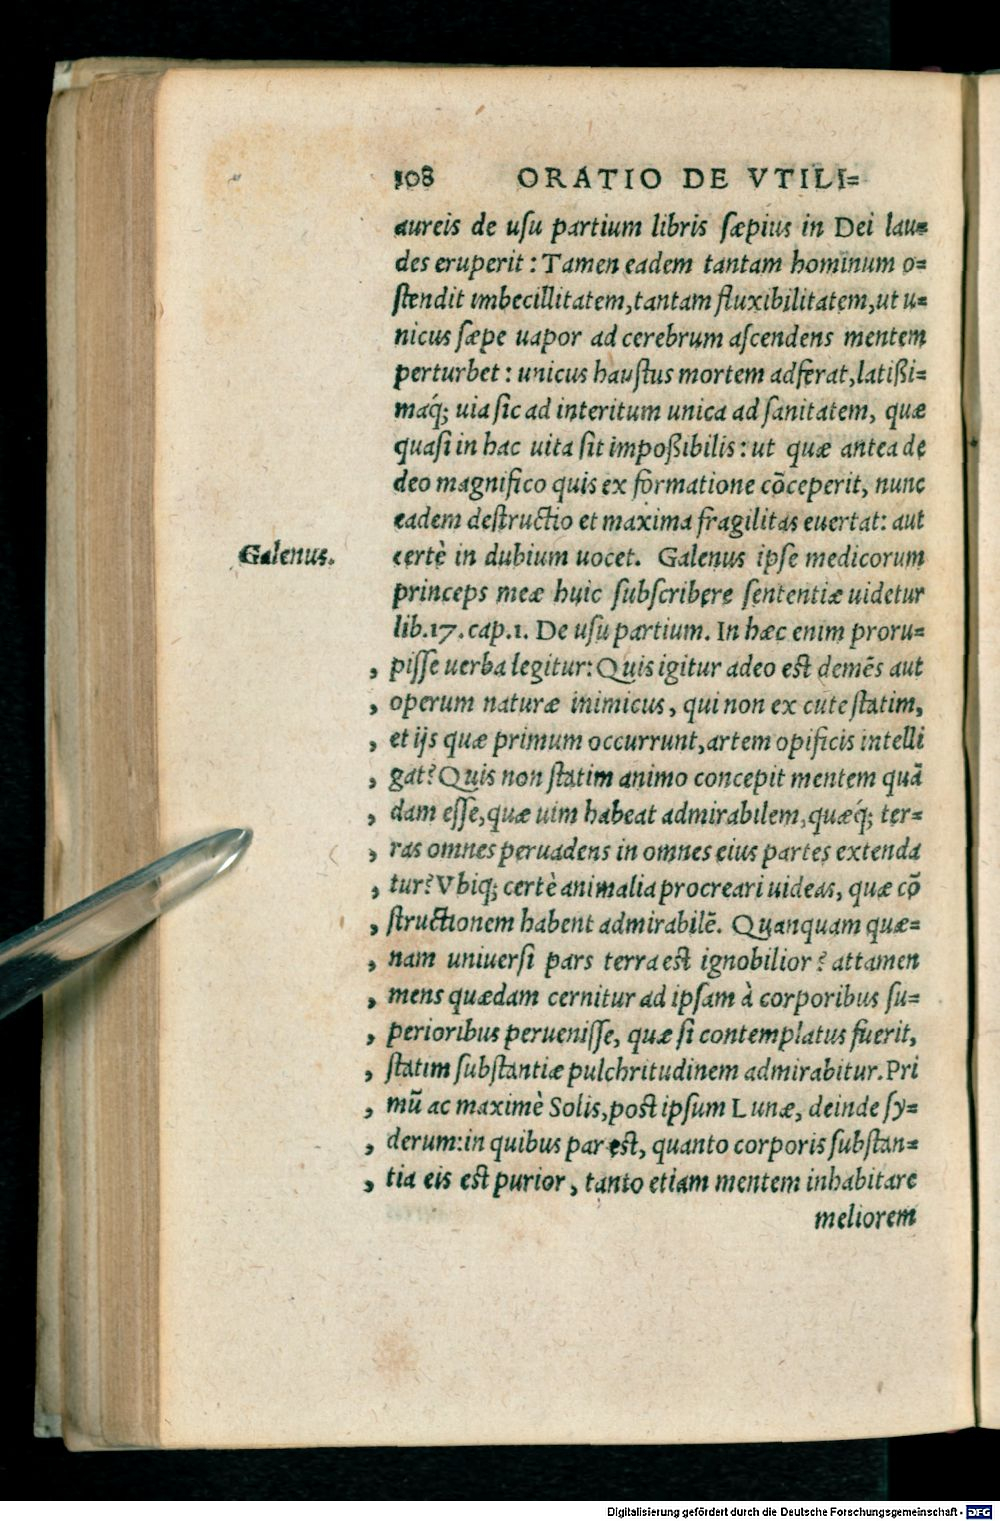 108 ORATIO DE VTILI=
aureis de usu partium libris sæpius in Dei lau=
des eruperit : Tamen eadem tantam hominum o=
ſtendit imbecillitatem, tantam fluxibilitatem, ut u=
nicus ſæpe uapor ad cerebrum aſcendens mentem
perturbet : unicus hauſtus mortem adferat, latißi=
maq́; uia ſic ad interitum unica ad ſanitatem, quæ
quaſi in hac uita ſit impoßibilis : ut quæ antea de
deo magnifico quis ex formatione cõceperit, nunc
eadem deſtructio et maxima fragilitas euertat: aut
Galenus. certè in dubium uocet. Galenus ipſe medicorum
princeps meæ huic ſubſcribere ſententiæ uidetur
lib.17.cap.1. De uſu partium. In hæc enim proru=
, piſſe uerba legitur: Quis igitur adeo eſt demẽs aut
, operum naturæ inimicus, qui non ex cute ſtatim,
, et ijs quæ primum occurrunt, artem opificis intelli
, gat? Quis non ſtatim animo concepit mentem quã
, dam eſſe, quæ uim habeat admirabilem, quæq́; ter=
, ras omnes peruadens in omnes eius partes extenda
, tur? Vbiq; certè animalia procreari uideas, quæ cõ
, ſtructionem habent admirabilẽ. Quanquam quæ=
, nam uniuerſi pars terra eſt ignobilior? attamen
, mens quædam cernitur ad ipſam à corporibus ſu=
, perioribus perueniſſe, quæ ſi contemplatus fuerit,
, ſtatim ſubſtantiæ pulchritudinem admirabitur. Pri
, mũ ac maximè Solis, poſt ipſum Lunæ, deinde ſy=
, derum: in quibus par eſt, quanto corporis ſubſtan=
, tia eis eſt purior, tanto etiam mentem inhabitare
meliorem
Digitalisierung gefördert durch die Deutsche Forschungsgemeinschaft - DFG